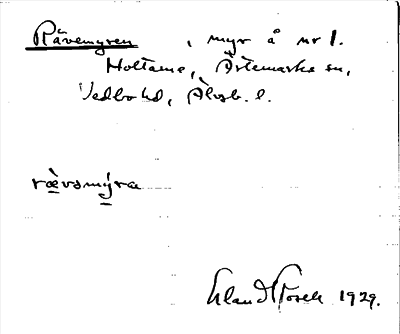 Rävemyren, myr å nr 1.
Holtane, Ärtemarks sn,
Vedbo hd, Älvsb. l.
rævsmýra
Erland Rosell 1929.